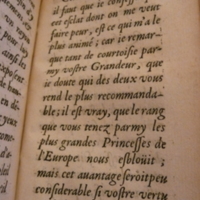 il faut que ie confesse
est esclat dont on me veut
faire peur, est ce qui m'a le
plus animé; car ie remar-
que tant de courtoisie par-
my vostre Grandeur, que
ie doute qui des deux vous
rend le plus recommanda-
ble; il est vray, que le rang
que vous tenez parmy les
plus grandes Princesses de
l'Europe nous esbloüit;
mais cet auantage seroit peu
considerable si vostre vertu